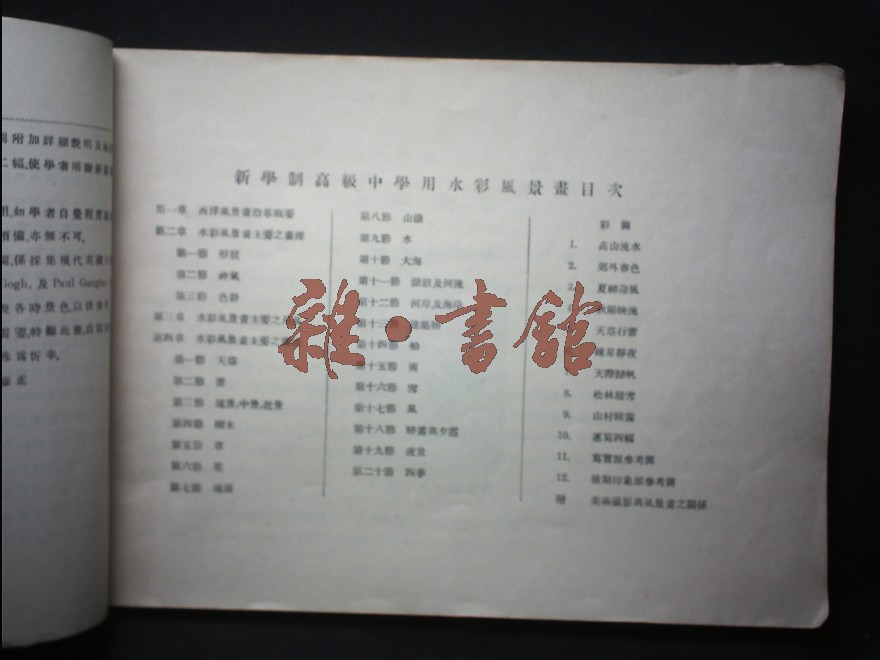 附加詳細說明及
二幅,使學者明瞭
用,如學者自覺程度
預備,亦無不可。
圖,係採集現代英國
Gogh, 及 Paul Gauguin
及各時景色,以供
需要,特編此書,自
殊為忻幸。
新學制高級中學用水彩風景畫目次
第一章 西洋風景畫沿革概要
第二章 水彩風景畫主要之畫理
第一節 形狀
第二節 神氣
第三節 色彩
第三章 水彩風景畫主要之
第四章 水彩風景畫主要之
第一節 天空
第二節 雲
第三節 遠景,中景,近景
第四節 樹木
第五節 草
第六節 花
第七節
第八節 山
第九節 水
第十節 大海
第十一節 湖沼及河流
第十二節 河岸及海岸
第十三節
第十四節 船
第十五節 雨
第十六節 雪
第十七節 風
第十八節 時霧與夕霞
第十九節 夜景
第二十節 四季
彩圖
1. 高山流水
2. 郊外春色
3. 夏
映流
天空行雲
星靜夜
天際歸帆
8. 松林積雪
9. 山村曉霧
10. 速寫四幅
11. 寫實派參考圖
12. 後期印象派參考圖
附 美術攝影與風景畫之關係
雜·書館